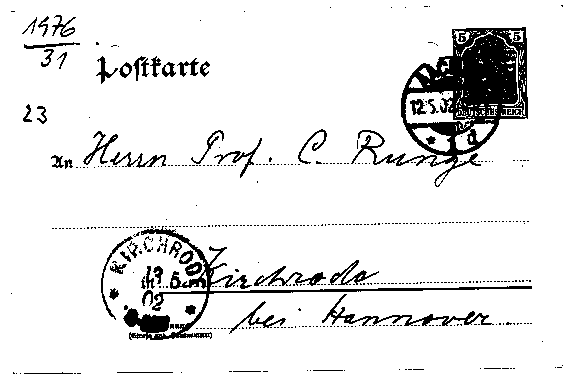 1976
31
Postkarte
23
5 5
DEUTSCHES REICH
12.5.02
* 1 d
An Herrn Prof. C. Runge
KIRCHRODE
13 5
02
Kirchrode
bei Hannover.